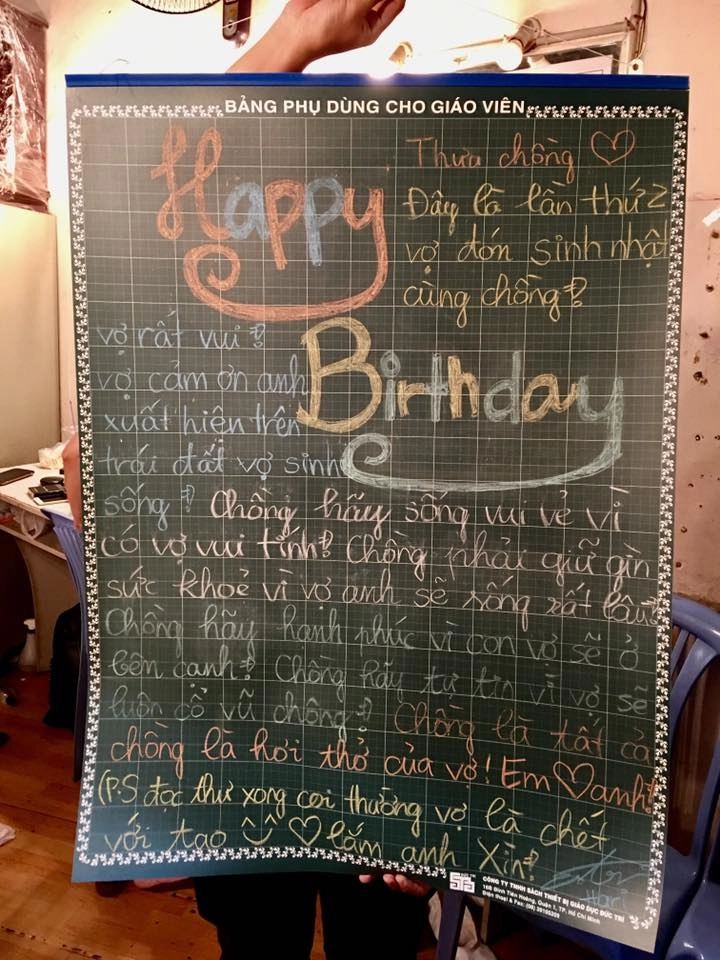 BẢNG PHỤ DÙNG CHO GIÁO VIÊN
Happy
Thưa chồng ♡
Đây là lần thứ 2
vợ đón sinh nhật
cùng chồng!
vợ rất vui!
Birthday
vợ cảm ơn anh
xuất hiện trên
trái đất vợ sinh
sống! Chồng hãy sống vui vẻ vì
có vợ vui tính! Chồng phải giữ gìn
sức khoẻ vì vợ anh sẽ sống rất lâu!
Chồng hãy hạnh phúc vì con vợ sẽ ở
bên cạnh! Chồng hãy tự tin vì vợ sẽ
luôn cổ vũ chồng! Chồng là tất cả
chồng là hơi thở của vợ! Em ♡ anh!
(P.S đọc thư xong coi thường vợ là chết
với tao ♡ lắm anh Xìn!
Hari
CÔNG TY TNHH SÁCH THIẾT BỊ GIÁO DỤC ĐỨC TRÍ
16B Đinh Tiên Hoàng, Quận 1, TP. Hồ Chí Minh